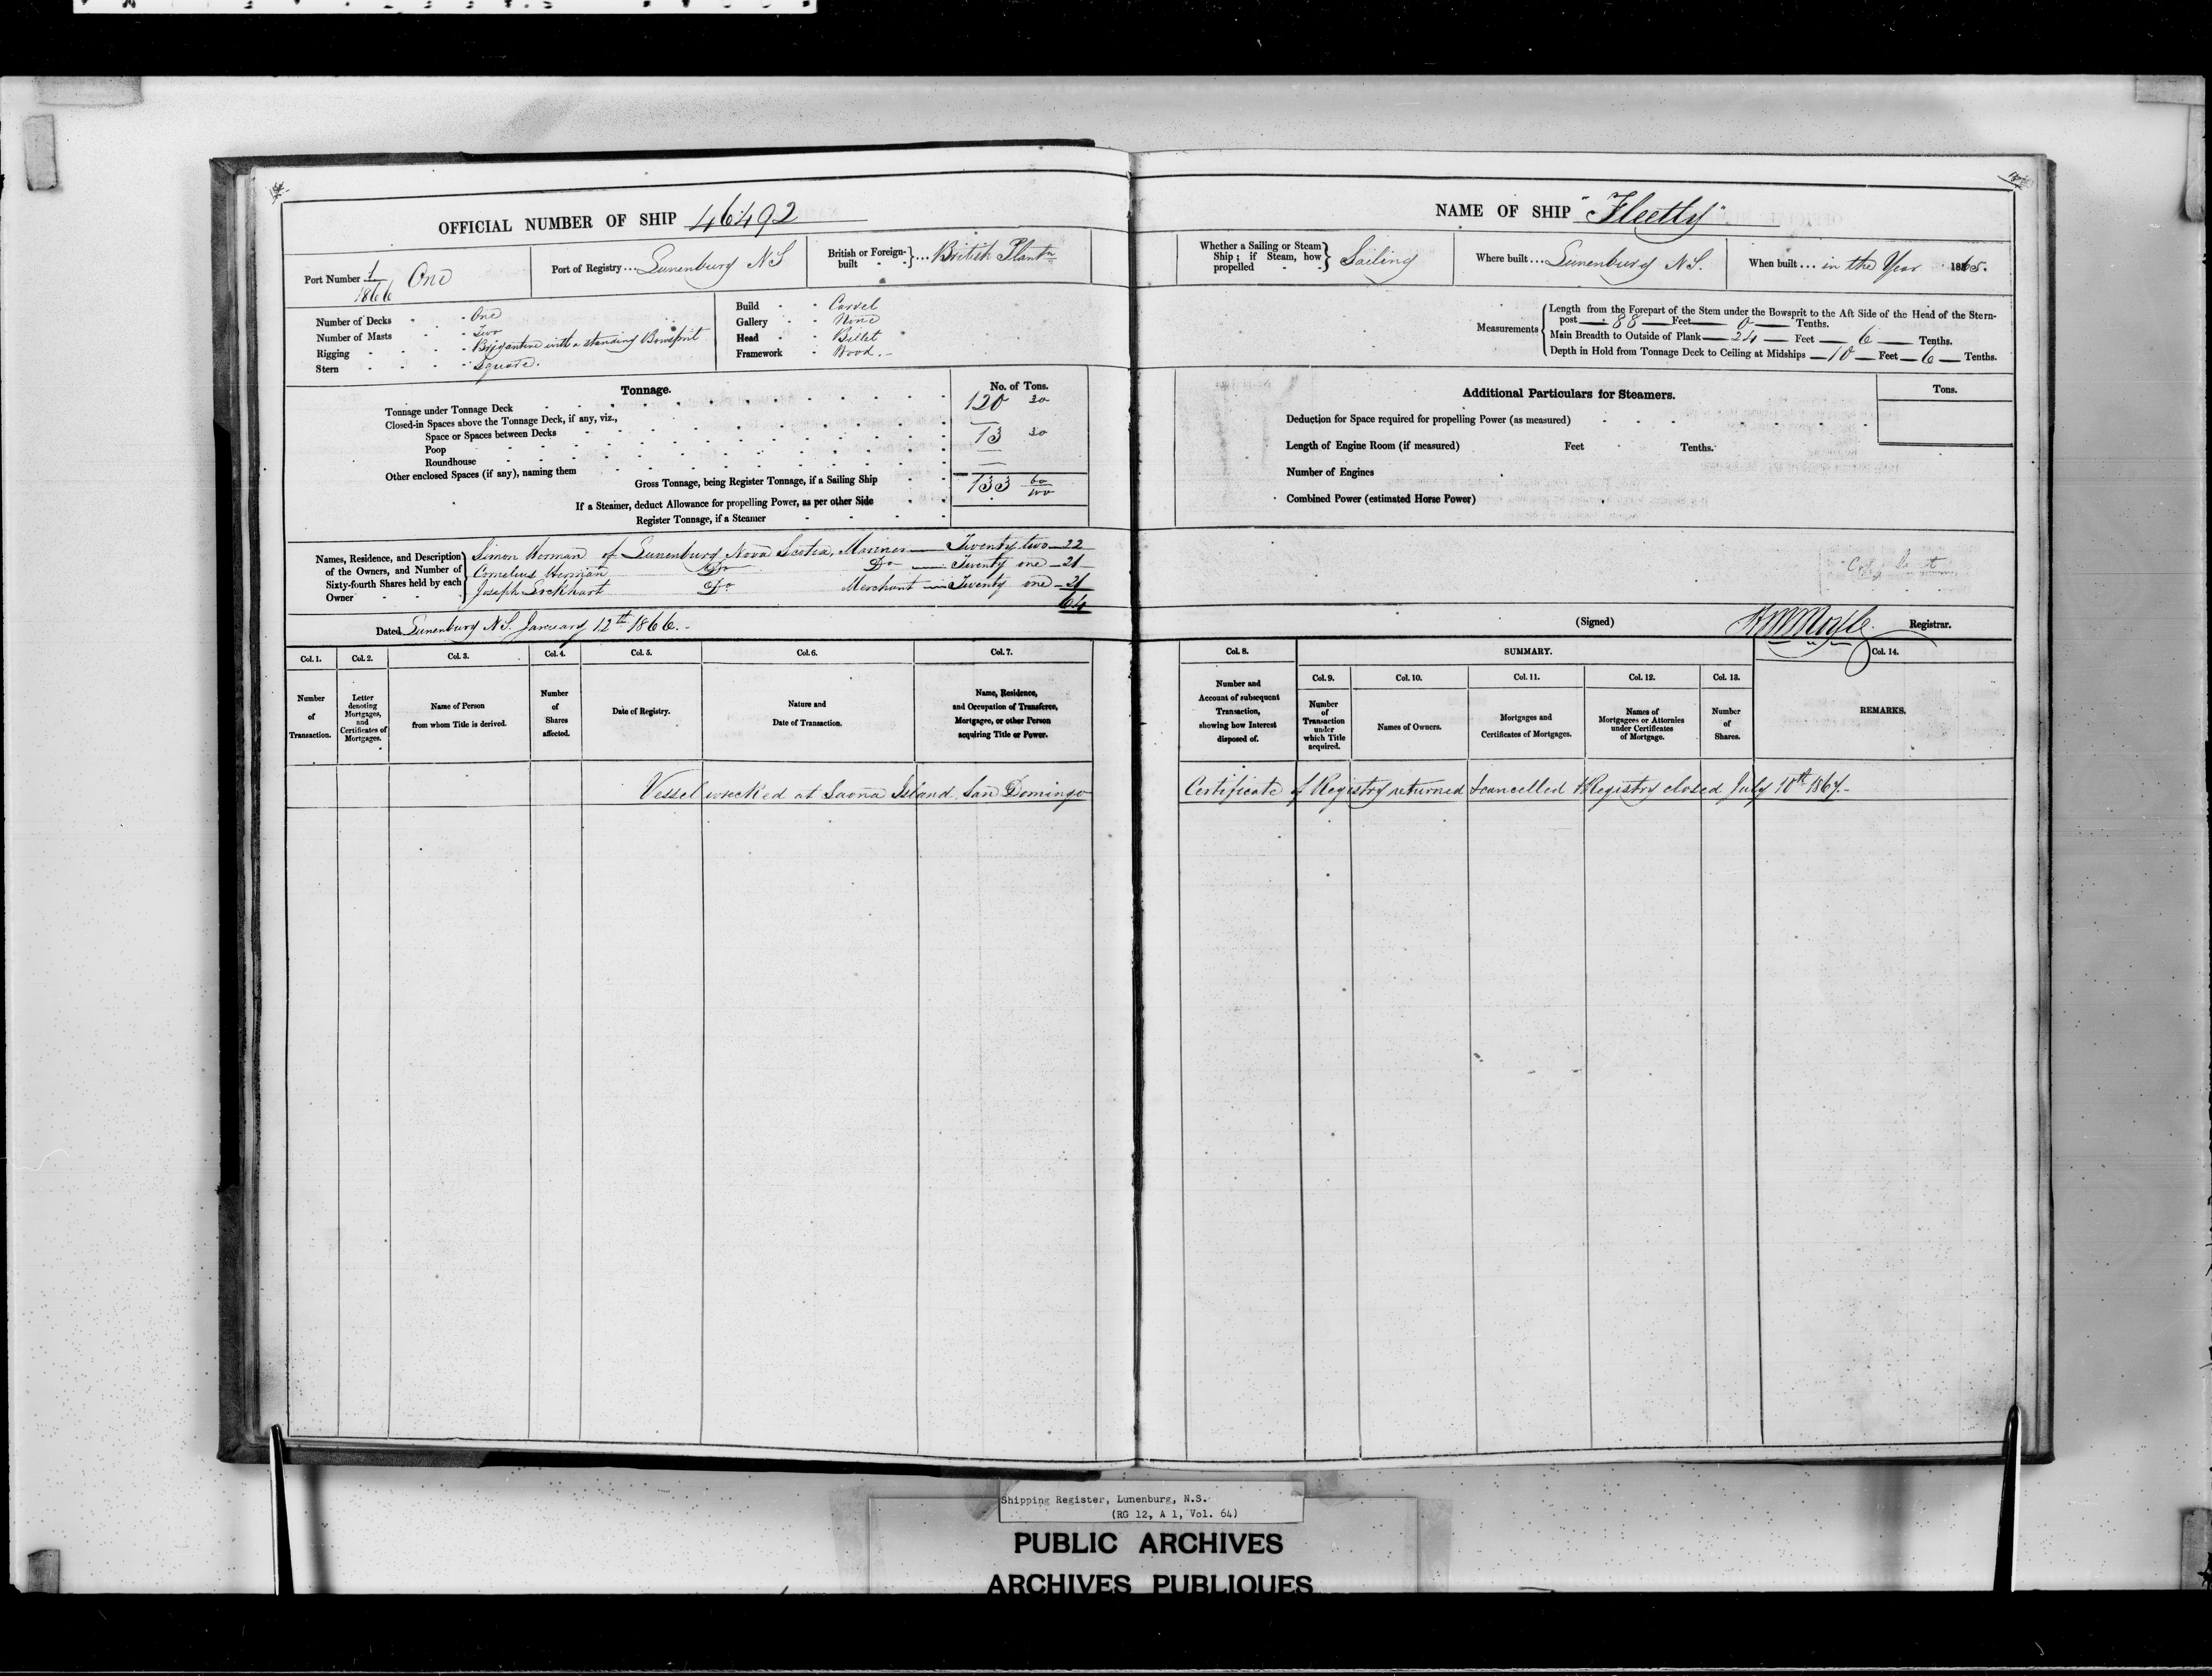 OFFICIAL NUMBER OF SHIP 46492
Port Number 1/1866 One
Port of Registry ... Lunenburg NS
British or Foreign-built } ... British Plantn
Number of Decks - One
Number of Masts - Two
Rigging - Brigantine with a standing Bowsprit
Stern - Square.
Build - Carvel
Gallery - None
Head - Billet
Framework - Wood.-
Tonnage.
No. of Tons.
Tonnage under Tonnage Deck 120 30
Closed-in Spaces above the Tonnage Deck, if any, viz.,
Space or Spaces between Decks 13 30
Poop
Roundhouse
Other enclosed Spaces (if any), naming them
Gross Tonnage, being Register Tonnage, if a Sailing Ship 133 60/100
If a Steamer, deduct Allowance for propelling Power, as per other Side
Register Tonnage, if a Steamer
Names, Residence, and Description of the Owners, and Number of Sixty-fourth Shares held by each Owner
Simon Herman of Lunenburg Nova Scotia, Mariner — Twenty two — 22
Cornelius Herman Do Do — Twenty one — 21
Joseph Lockhart Do Merchant — Twenty one — 21
64
Dated Lunenburg N.S. January 12th 1866.-
Col. 1. Number of Transaction.
Col. 2. Letter denoting Mortgages, and Certificates of Mortgages.
Col. 3. Name of Person from whom Title is derived.
Col. 4. Number of Shares affected.
Col. 5. Date of Registry.
Col. 6. Nature and Date of Transaction.
Col. 7. Name, Residence, and Occupation of Transferee, Mortgagee, or other Person acquiring Title or Power.
Vessel wrecked at Saona Island, San Domingo
NAME OF SHIP "Fleetly"
Whether a Sailing or Steam Ship; if Steam, how propelled } Sailing
Where built ... Lunenburg N.S.
When built ... in the Year 1865.
Measurements
Length from the Forepart of the Stem under the Bowsprit to the Aft Side of the Head of the Stern-
post — 88 — Feet — 0 — Tenths.
Main Breadth to Outside of Plank — 24 — Feet — 6 — Tenths.
Depth in Hold from Tonnage Deck to Ceiling at Midships — 10 — Feet — 6 — Tenths.
Additional Particulars for Steamers.
Tons.
Deduction for Space required for propelling Power (as measured)
Length of Engine Room (if measured) Feet Tenths.
Number of Engines
Combined Power (estimated Horse Power)
(Signed) Registrar.
Col. 8. Number and Account of subsequent Transaction, showing how Interest disposed of.
SUMMARY.
Col. 9. Number of Transaction under which Title acquired.
Col. 10. Names of Owners.
Col. 11. Mortgages and Certificates of Mortgages.
Col. 12. Names of Mortgagees or Attornies under Certificates of Mortgage.
Col. 13. Number of Shares.
Col. 14. REMARKS.
Certificate of Registry returned & cancelled & Registry closed July 10th 1867.-
Shipping Register, Lunenburg, N.S.
(RG 12, A 1, Vol. 64)
PUBLIC ARCHIVES
ARCHIVES PUBLIQUES